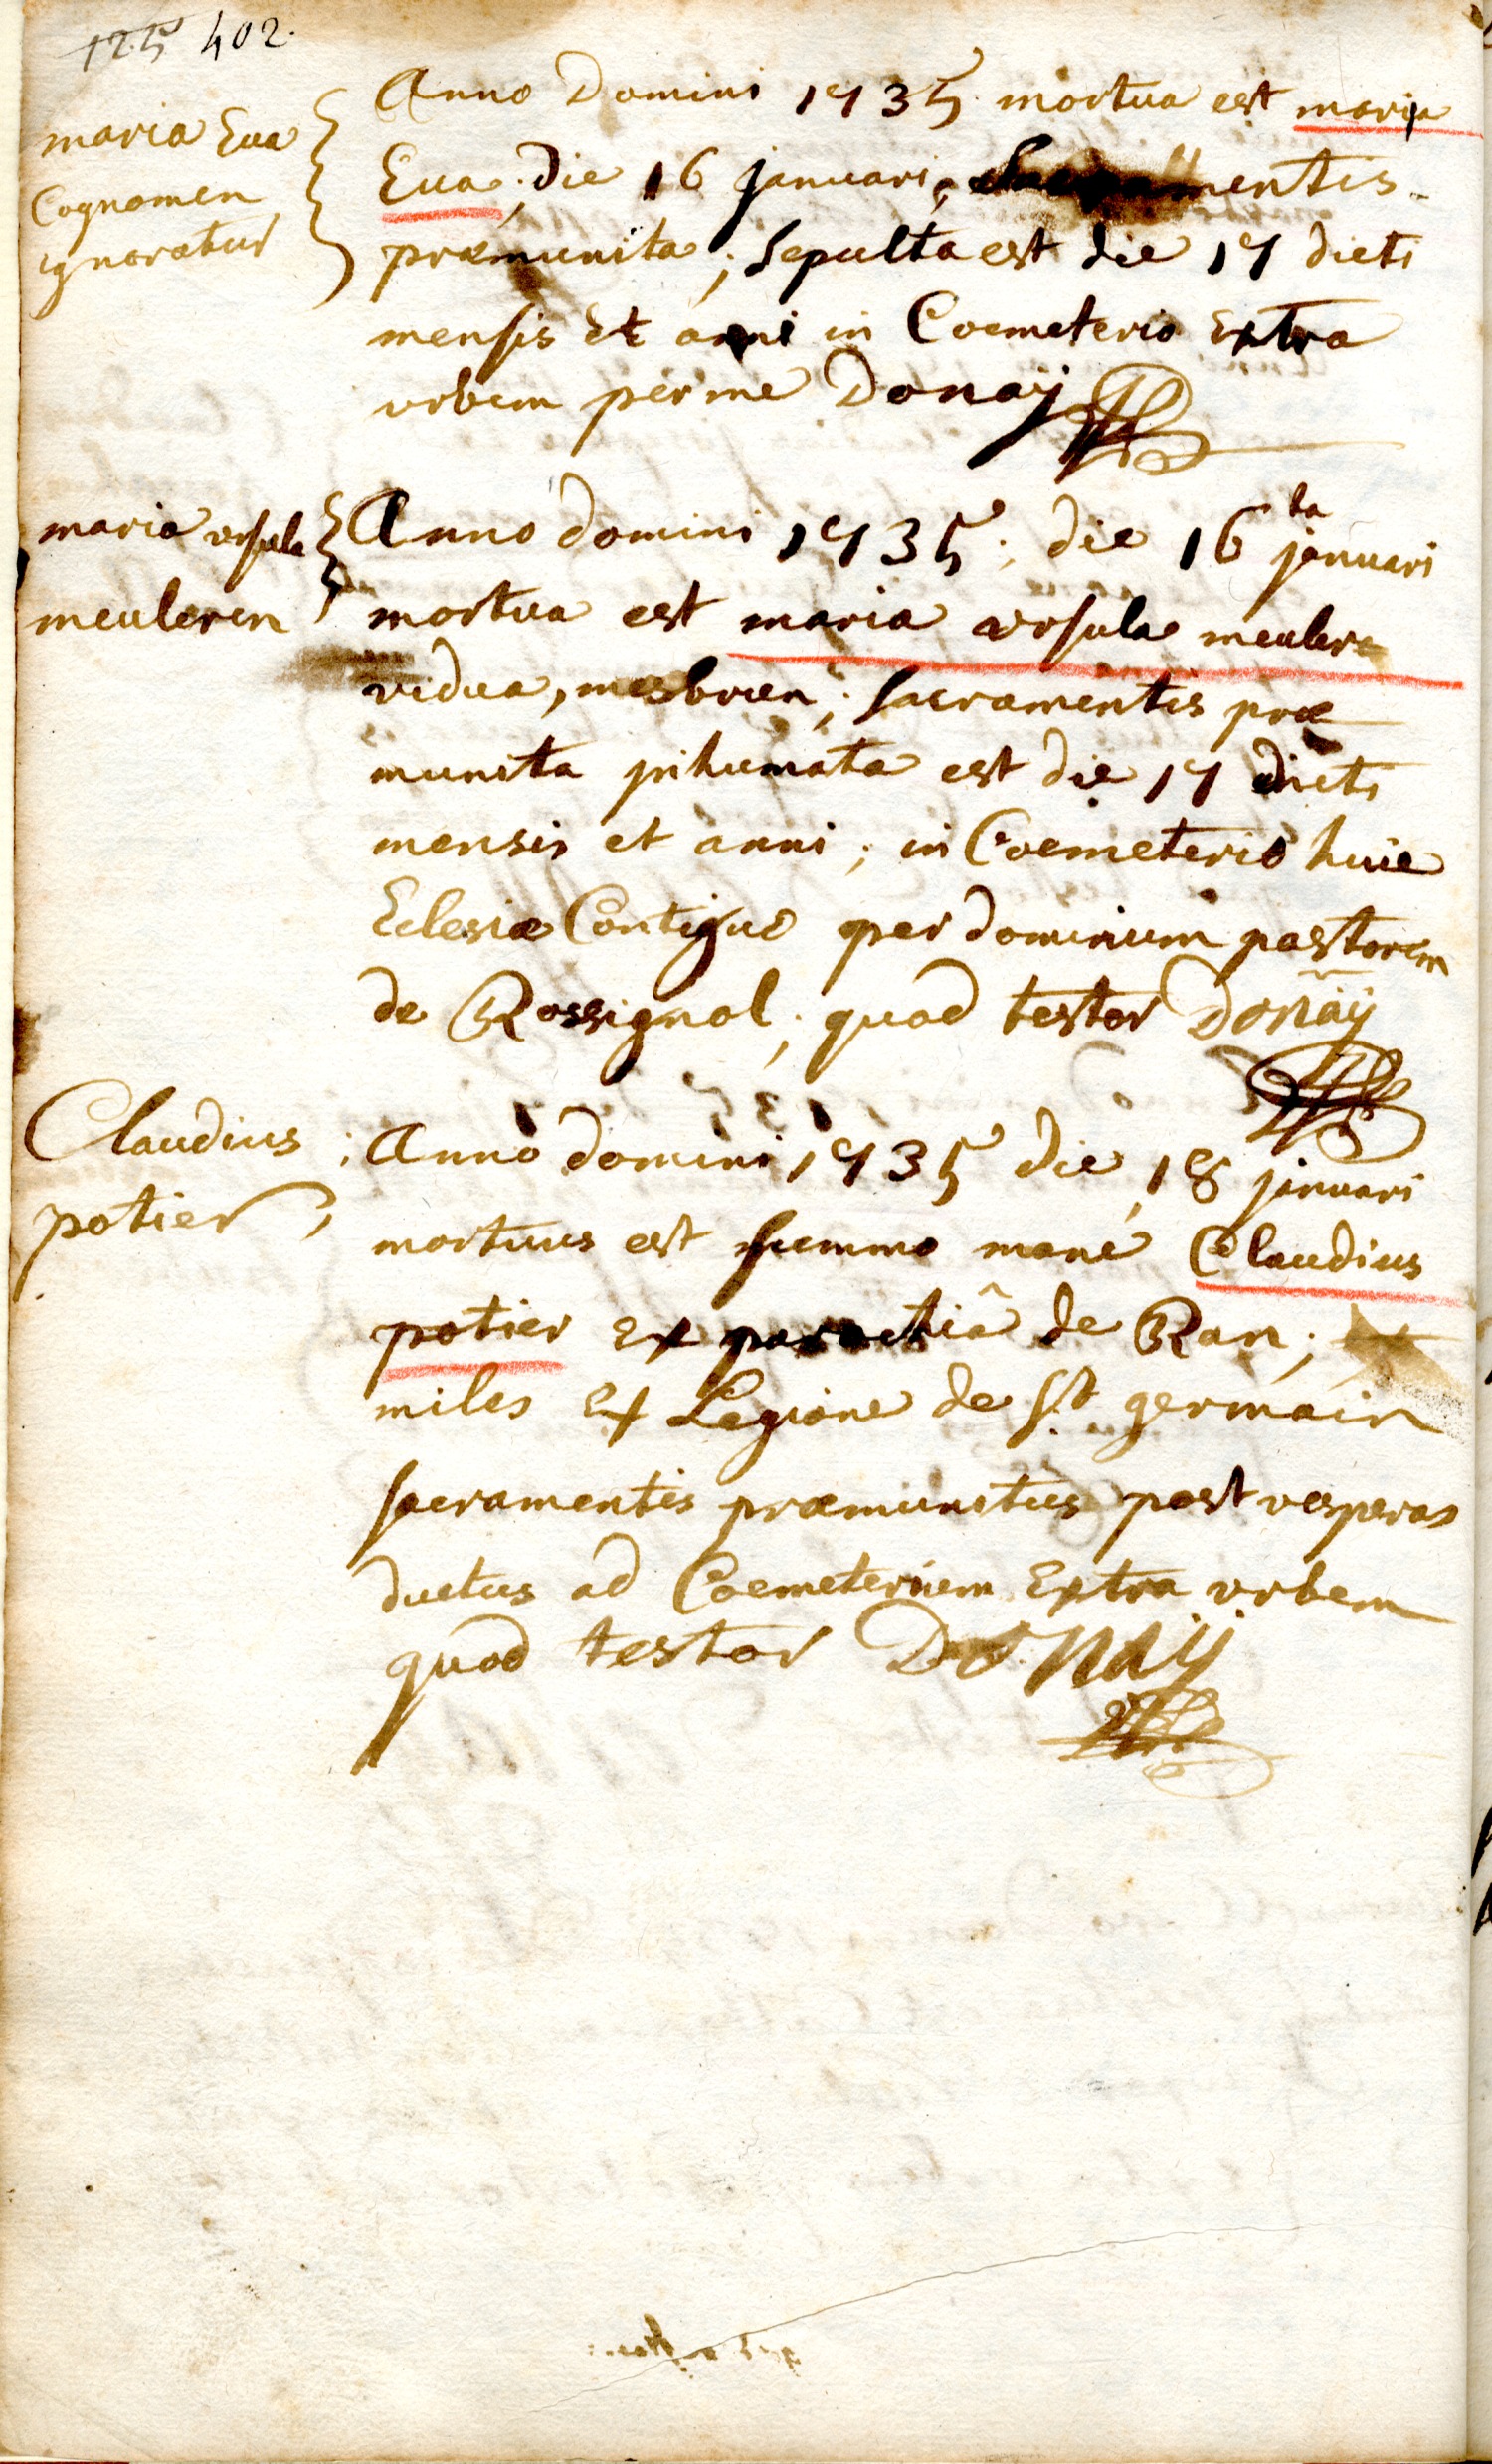 125 402.
maria Eua
Cognomen
ignoratur
Anno Domini 1735 mortua est maria
Eua; die 16 januari, sacramentis
præmunita; sepulta est die 17 dicti
mensis Et anni in Coemeterio Extra
urbem per me Donaÿ
maria ursula
meuleren
Anno domini 1735; die 16 ta januari
mortua est maria ursula meulere
vidua, mesbruen; sacramentis præ
munita inhumata est die 17 dicti
mensis et anni; in Coemeterio huic
Eclesiæ Contiguo per dominum pastorem
de Rossignol; quod testor Donaÿ
Claudius
potier
Anno domini 1735 die 18 januari
mortuus est summo mane Claudius
potier Ex parochiâ de Ran;
miles Ex Legione de St germain
sacramentis præmunitus post vesperas
ductus ad Coemeterium Extra urbem
quod testor Donaÿ